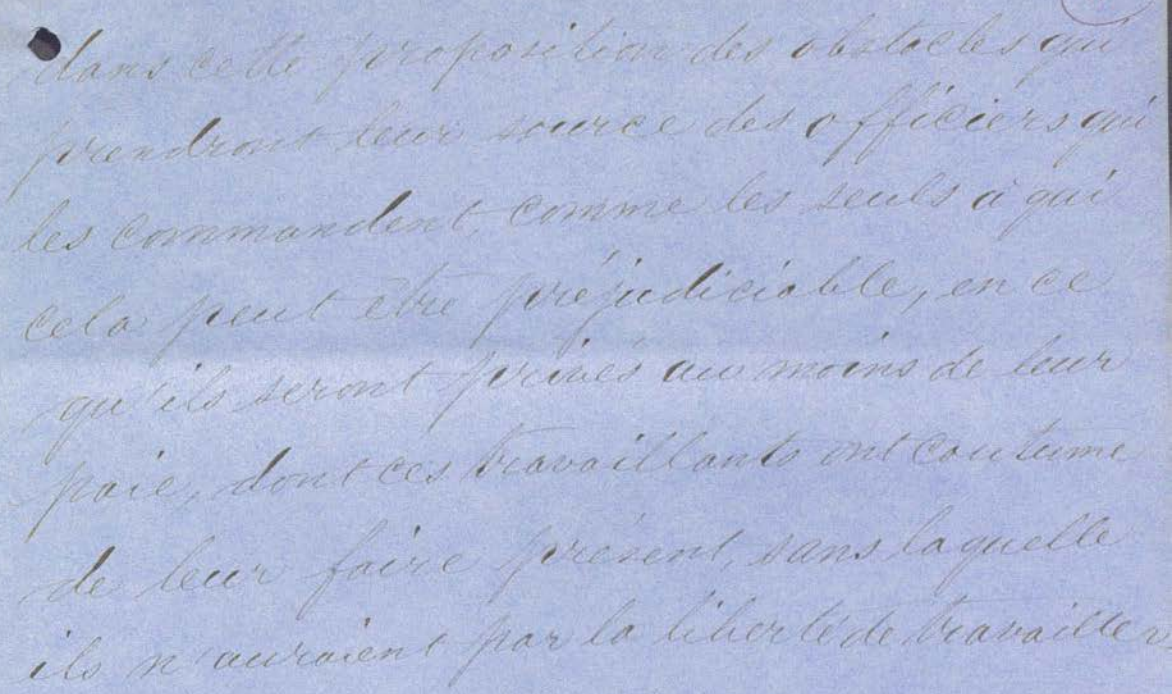 dans cette proposition des obstacles qui
prendront leur source des officiers qui
les commandent, comme les seuls à qui
cela peut être préjudiciable, en ce
qu'ils seront privés au moins de leur
paie, dont ces travaillants ont coutume
de leur faire présent, sans laquelle
ils n'auraient par la liberté de travailler